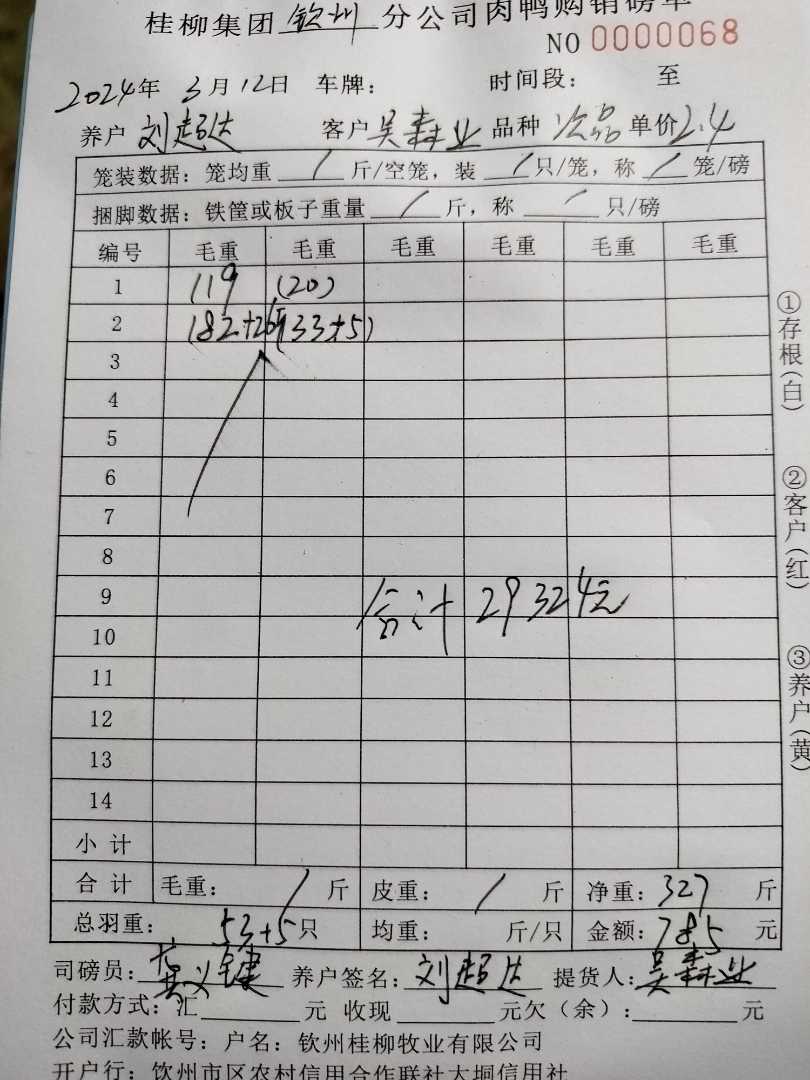 桂柳集团 钦州 分公司肉鸭购销磅单
NO 0000068
2024年 3月12日 车牌: 时间段: 至
养户 刘超达 客户 吴森业 品种 次品 单价2.4
笼装数据: 笼均重 / 斤/空笼, 装 / 只/笼, 称 / 笼/磅
捆脚数据: 铁筐或板子重量 / 斤, 称 / 只/磅
编号 毛重 毛重 毛重 毛重 毛重 毛重
1 119 (20)
2 182+26 (33+5)
3
4
5
6
7
8
9 合计 29324元
10
11
12
13
14
小计
合计 毛重: / 斤 皮重: / 斤 净重: 327 斤
总羽重: 53+5只 均重: 斤/只 金额: 785 元
司磅员: 养户签名: 刘超达 提货人: 吴森业
付款方式: 汇 元 收现 元欠(余): 元
公司汇款帐号: 户名: 钦州桂柳牧业有限公司
开户行: 钦州市区农村信用合作联社大垌信用社
①存根(白)
②客户(红)
③养户(黄)